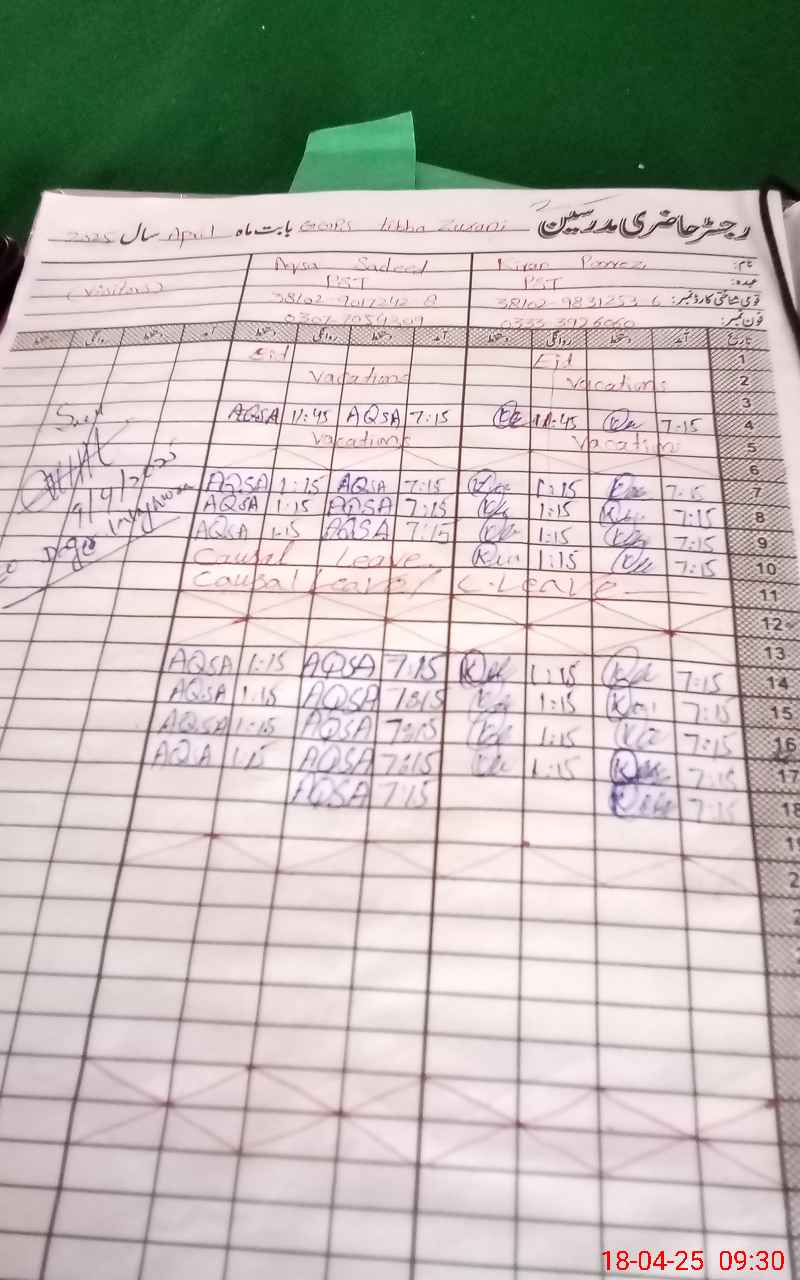 رجسٹر حاضری مدرسین GGPS Tibba Zurani بابت ماہ April سال 2025
نام: Kiran Parvez Aqsa Sadeed
عہدہ: PST PST (Visitors)
قومی شناختی کارڈ نمبر: 38102-9831253-6
فون نمبر: 0333-3926060
تاریخ آمد دستخط روانگی دستخط آمد دستخط روانگی دستخط آمد دستخط روانگی دستخط
1 Eid Eid
2 Vacations Vacations
3
4 7:15 11:45 7:15 AQSA 11:45 AQSA
5 Vacations Vacations
6
7 7:15 1:15 7:15 AQSA 1:15 AQSA
8 7:15 1:15 7:15 AQSA 1:15 AQSA
9 7:15 1:15 7:15 AQSA 1:15 AQSA
9/4/2025
10 7:15 1:15 Causal Leave
11 C.Leave Causal Leave
12
13
14 7:15 1:15 7:15 AQSA 1:15 AQSA
15 7:15 1:15 7:15 AQSA 1:15 AQSA
16 7:15 1:15 7:15 AQSA 1:15 AQSA
17 7:15 1:15 7:15 AQSA 1:15 AQA
18 7:15 7:15 AQSA
18-04-25 09:30